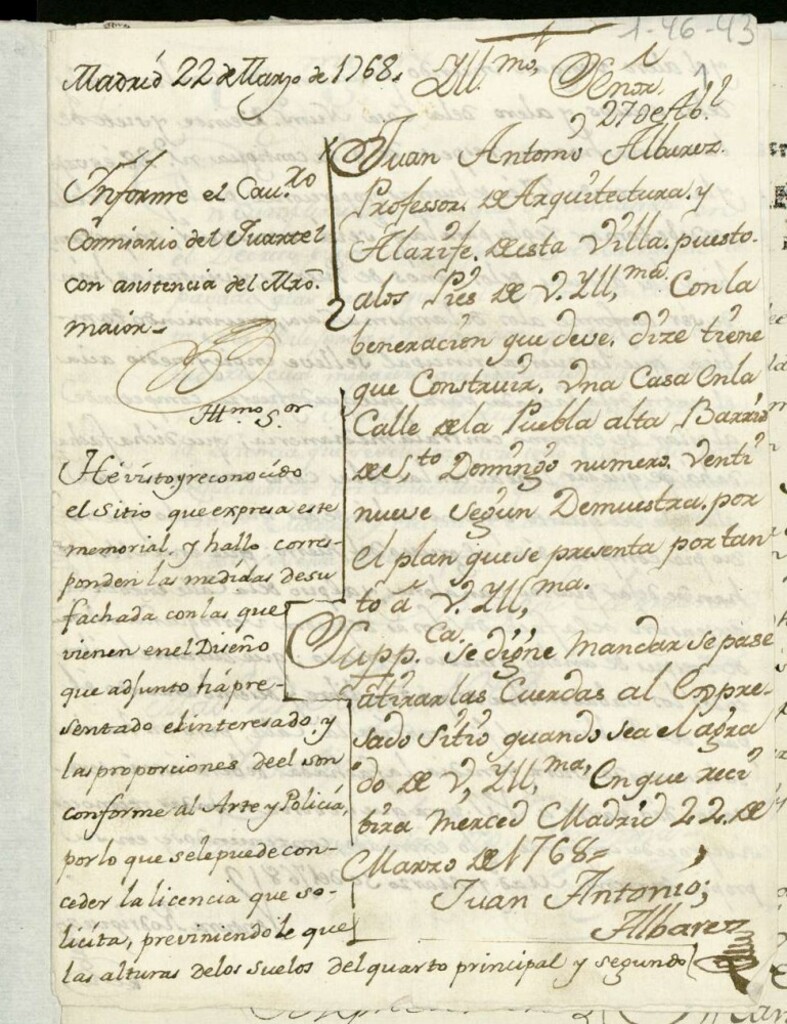 1-46-43
Madrid 22 de Marzo de 1768.
Informe el Cav.ro
Comisario del Quartel
con asistencia del Mro.
maior
Yll.mo Señor
27 de Ab.l
Juan Antonio Albarez
Professor de Arquitectura y
Alarife desta Villa puesto
alos Pies de V. Yll.ma Con la
beneracion que deve, dize tiene
que Construir, vna Casa En la
Calle de la Puebla alta Barrio
de S.to Domingo numero venti
nueve segun Demuestra por
el plan que se presenta por tan
to á V. Yll.ma
Supp.ca se digne mandar se pase
á tirar las Cuerdas al Expre-
sado sitio quando sea el agra
do de V. Yll.ma, En que reci
vira merced Madrid 22 de
Marzo de 1768=
Juan Antonio
Albarez
Yll.mo S.or
Hé visto y reconocido
el sitio que expresa este
memorial, y hallo corres-
ponden las medidas desu
fachada con las que
vienen en el Diseño
que adjunto há pre-
sentado el interesado, y
las proporciones de el son
conforme al Arte y Policiá,
por lo que se le puede con-
ceder la licencia que so-
licita, previniendole que
las alturas delos suelos del quarto principal y segundo